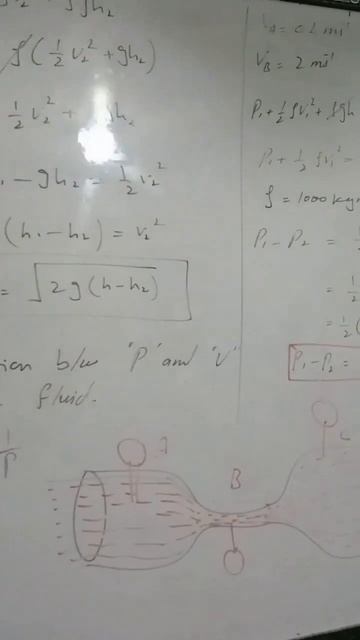 ρ(½v₂² + gh₂)
½v₂² + gh₂
- gh₂ = ½v₂²
(h₁ - h₂) = v₂²
= √2g(h-h₂)
b/w "P" and "V"
fluid.
A
B
C
V_B = 2 ms⁻¹
P₁ + ½ρv₁² + ρgh
P₁ + ½ρv₁² =
ρ = 1000 kgm
P₁ - P₂ =
= ½
= ½(
P₁ - P₂ =